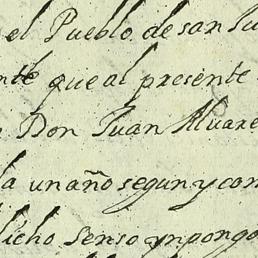 el Pueblo de san Ju
nte que al presente
Don Juan Alvare
la un año segun y con
dicho senso ynpongo